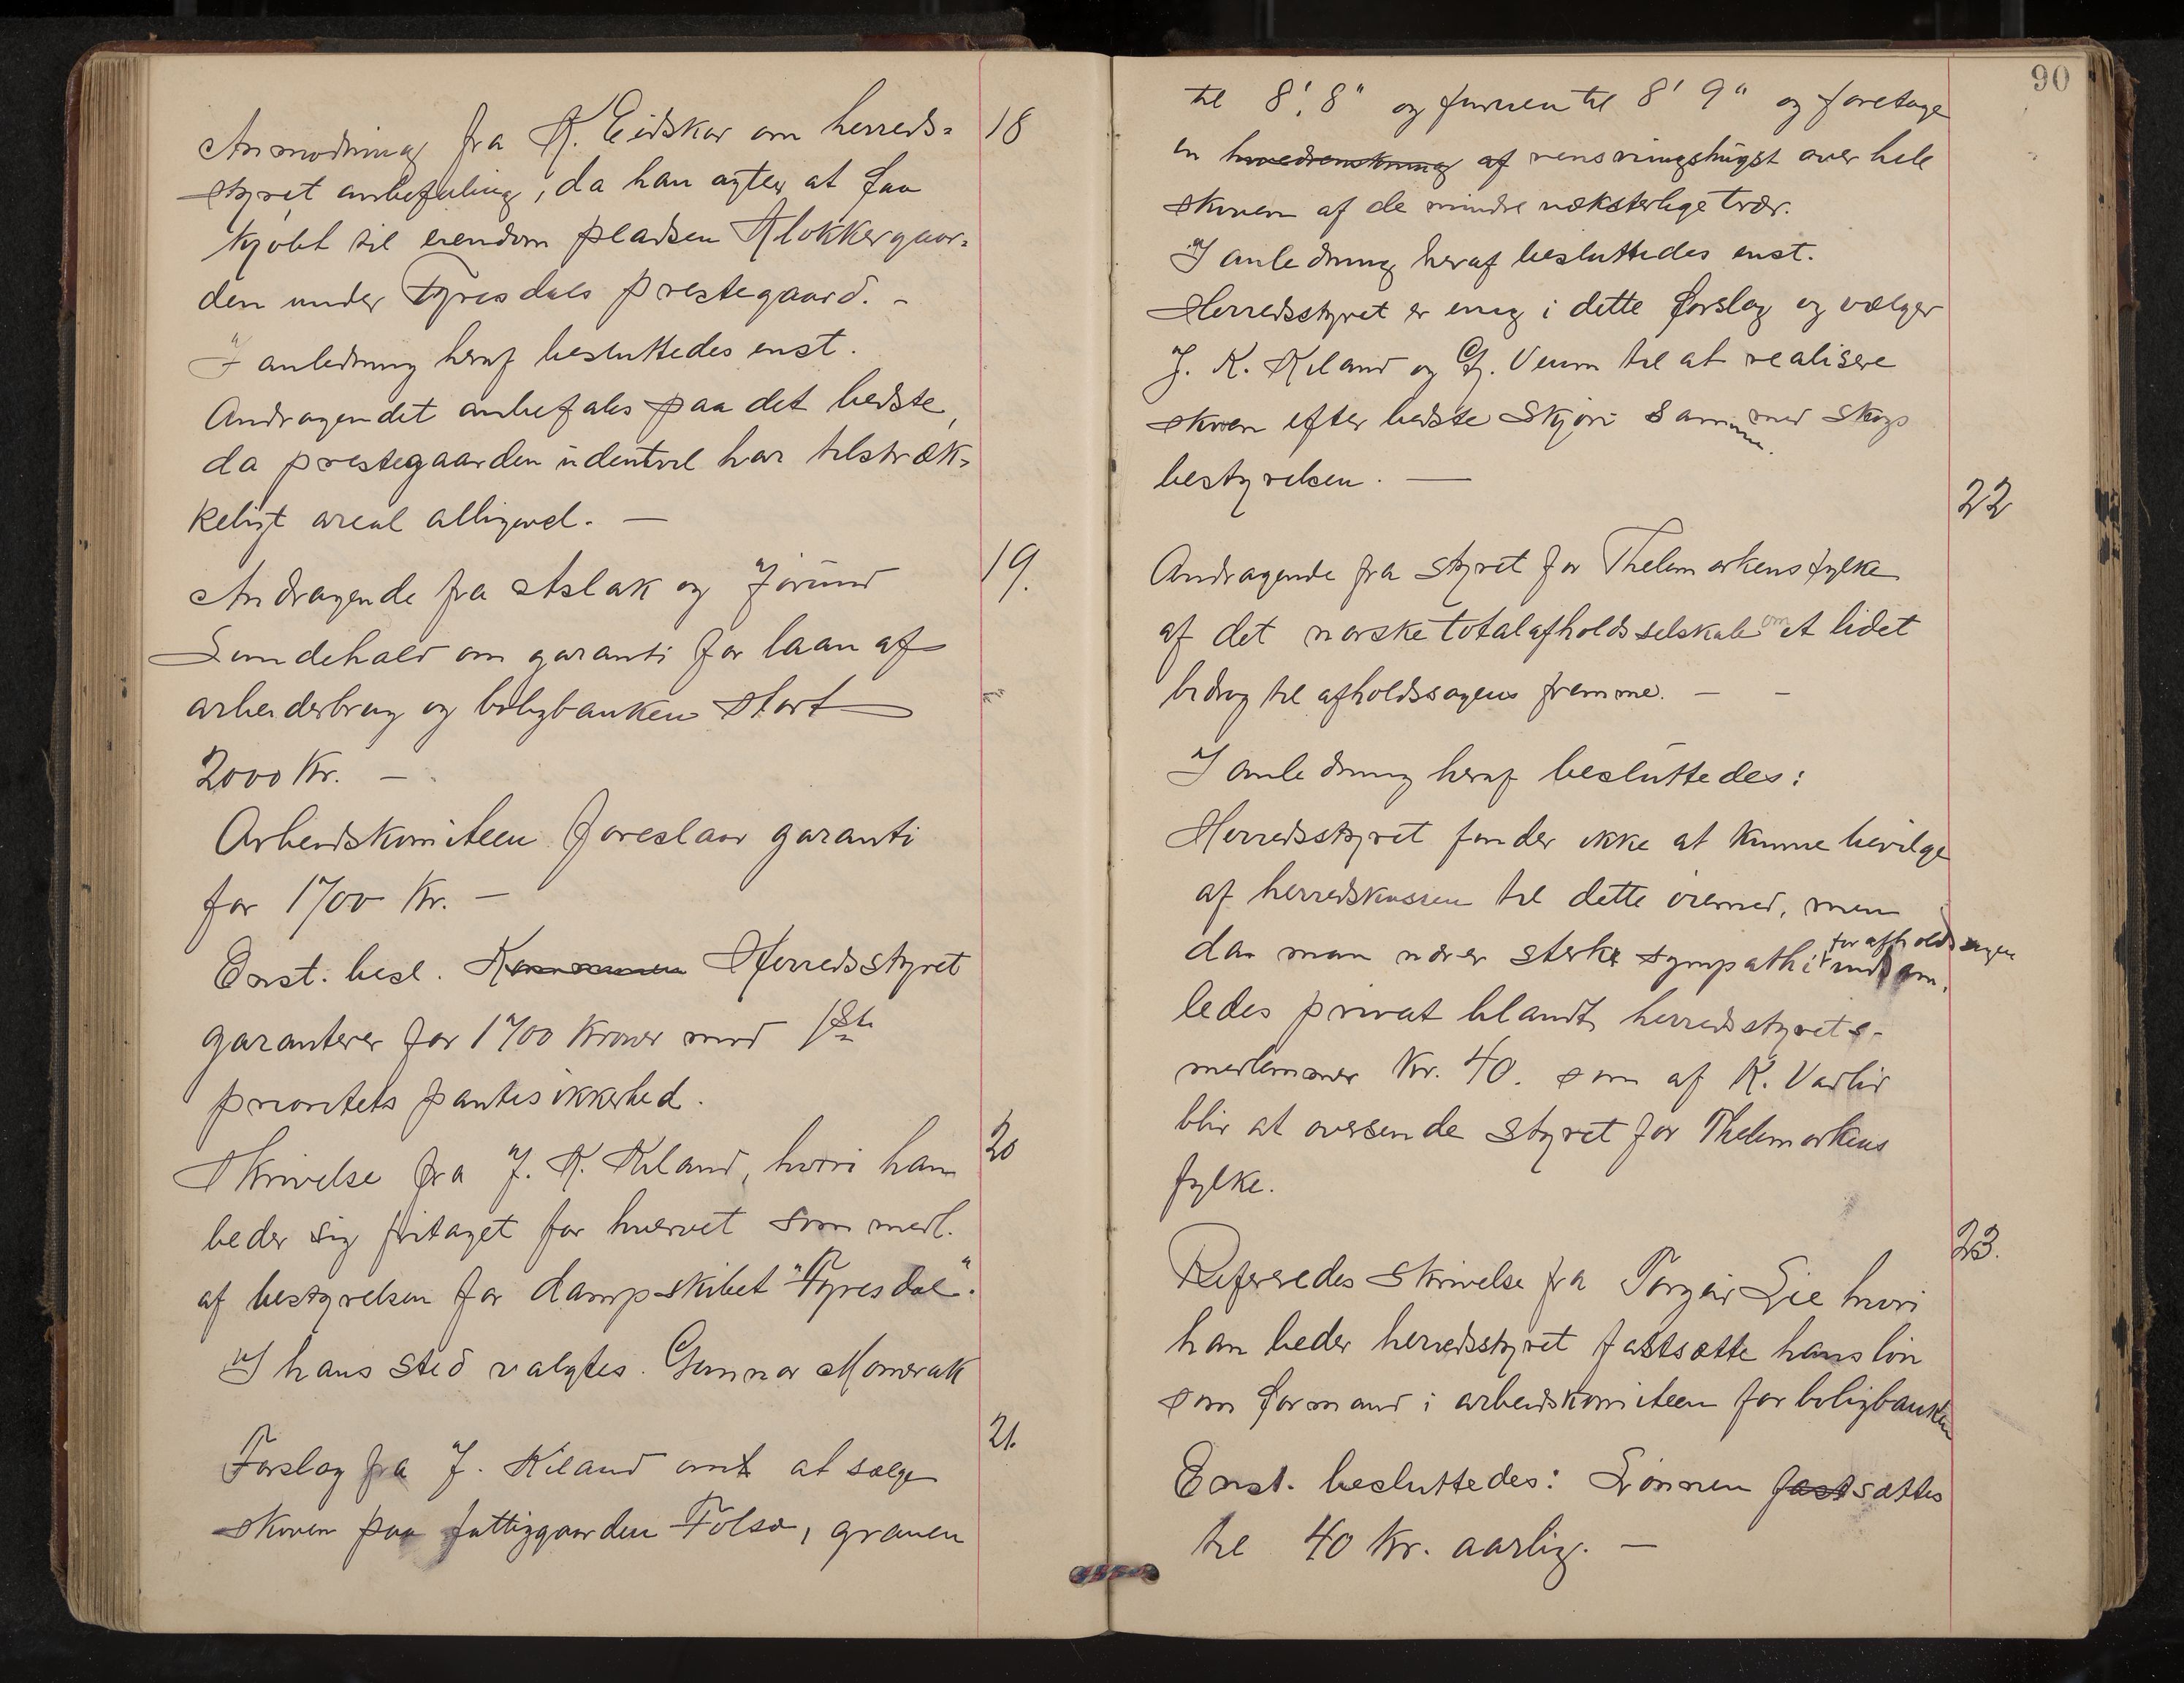 18
Anmodning fra K. Eidskar om herreds-
styret anbefaling, da han agter at faa
kjöbt til eiendom pladsen Klokkergaar-
den under Tyresdals prestegaard. -
I anledning heraf besluttedes enst.
Andragendet anbefales paa det bedste,
da prestegaarden udentvil har tilstræk-
keligt areal alligevel. —
19.
Andragende fra Aslak og Jörund
Sundehald om garanti for laan af
arbeiderbrug og boligbanken stort
2000 Kr. —
Arbeidskomiteen foreslaar garanti
for 1700 Kr. —
Enst. besl. Kommunen Herredsstyret
garanterer for 1700 kroner mod 1ste
prioritets pantesikkerhed.
20
Skrivelse fra J. K. Kiland, hvori han
beder sig fritaget for hvervet som medl.
af bestyrelsen for dampskibet "Tyresdal".
I hans sted valgtes. Gunnar Momrak
21.
Forslag fra J. Kiland om at sælge
skoven paa fattiggaarden Folsæ, granen
90
til 8'. 8" og furuen til 8' 9" og foretage
en af rensningshugst over hele
skoven af de mindre væksterlige trær.
I anledning heraf besluttedes enst.
Herredsstyret er enig i dette forslag og vælger
J. K. Kiland og G. Veum til at realisere
skoven efter bedste skjön sammen med skogs
bestyrelsen. —
22
Andragende fra styret for Thelemarkens fylke
af det norske totalafholdsselskab om et lidet
bidrag til afholdssagens fremme. — —
I anledning heraf besluttedes:
Herredsstyret finder ikke at kunne bevilge
af herredskassen til dette öiemed, men
da man nærer sterke sympathi for afholdssagen indsam-
ledes privat blandt herredsstyrets-
medlemmer Kr. 40. som af K. Vadlid
blir at oversende styret for Thelemarkens
fylke.
23.
Refereredes skrivelse fra Torgeir Lie hvori
han beder herredsstyret fastsætte hans lön
som formand i arbeidskomiteen for boligbanken
Enst. besluttedes: Lönnen fastsættes
til 40 kr. aarlig. —